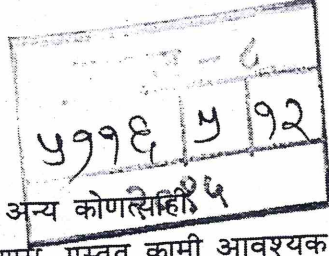 - ८
५११६ ५ १२
अन्य कोणत्याही १५
प्रस्तुत कामी आवश्यक